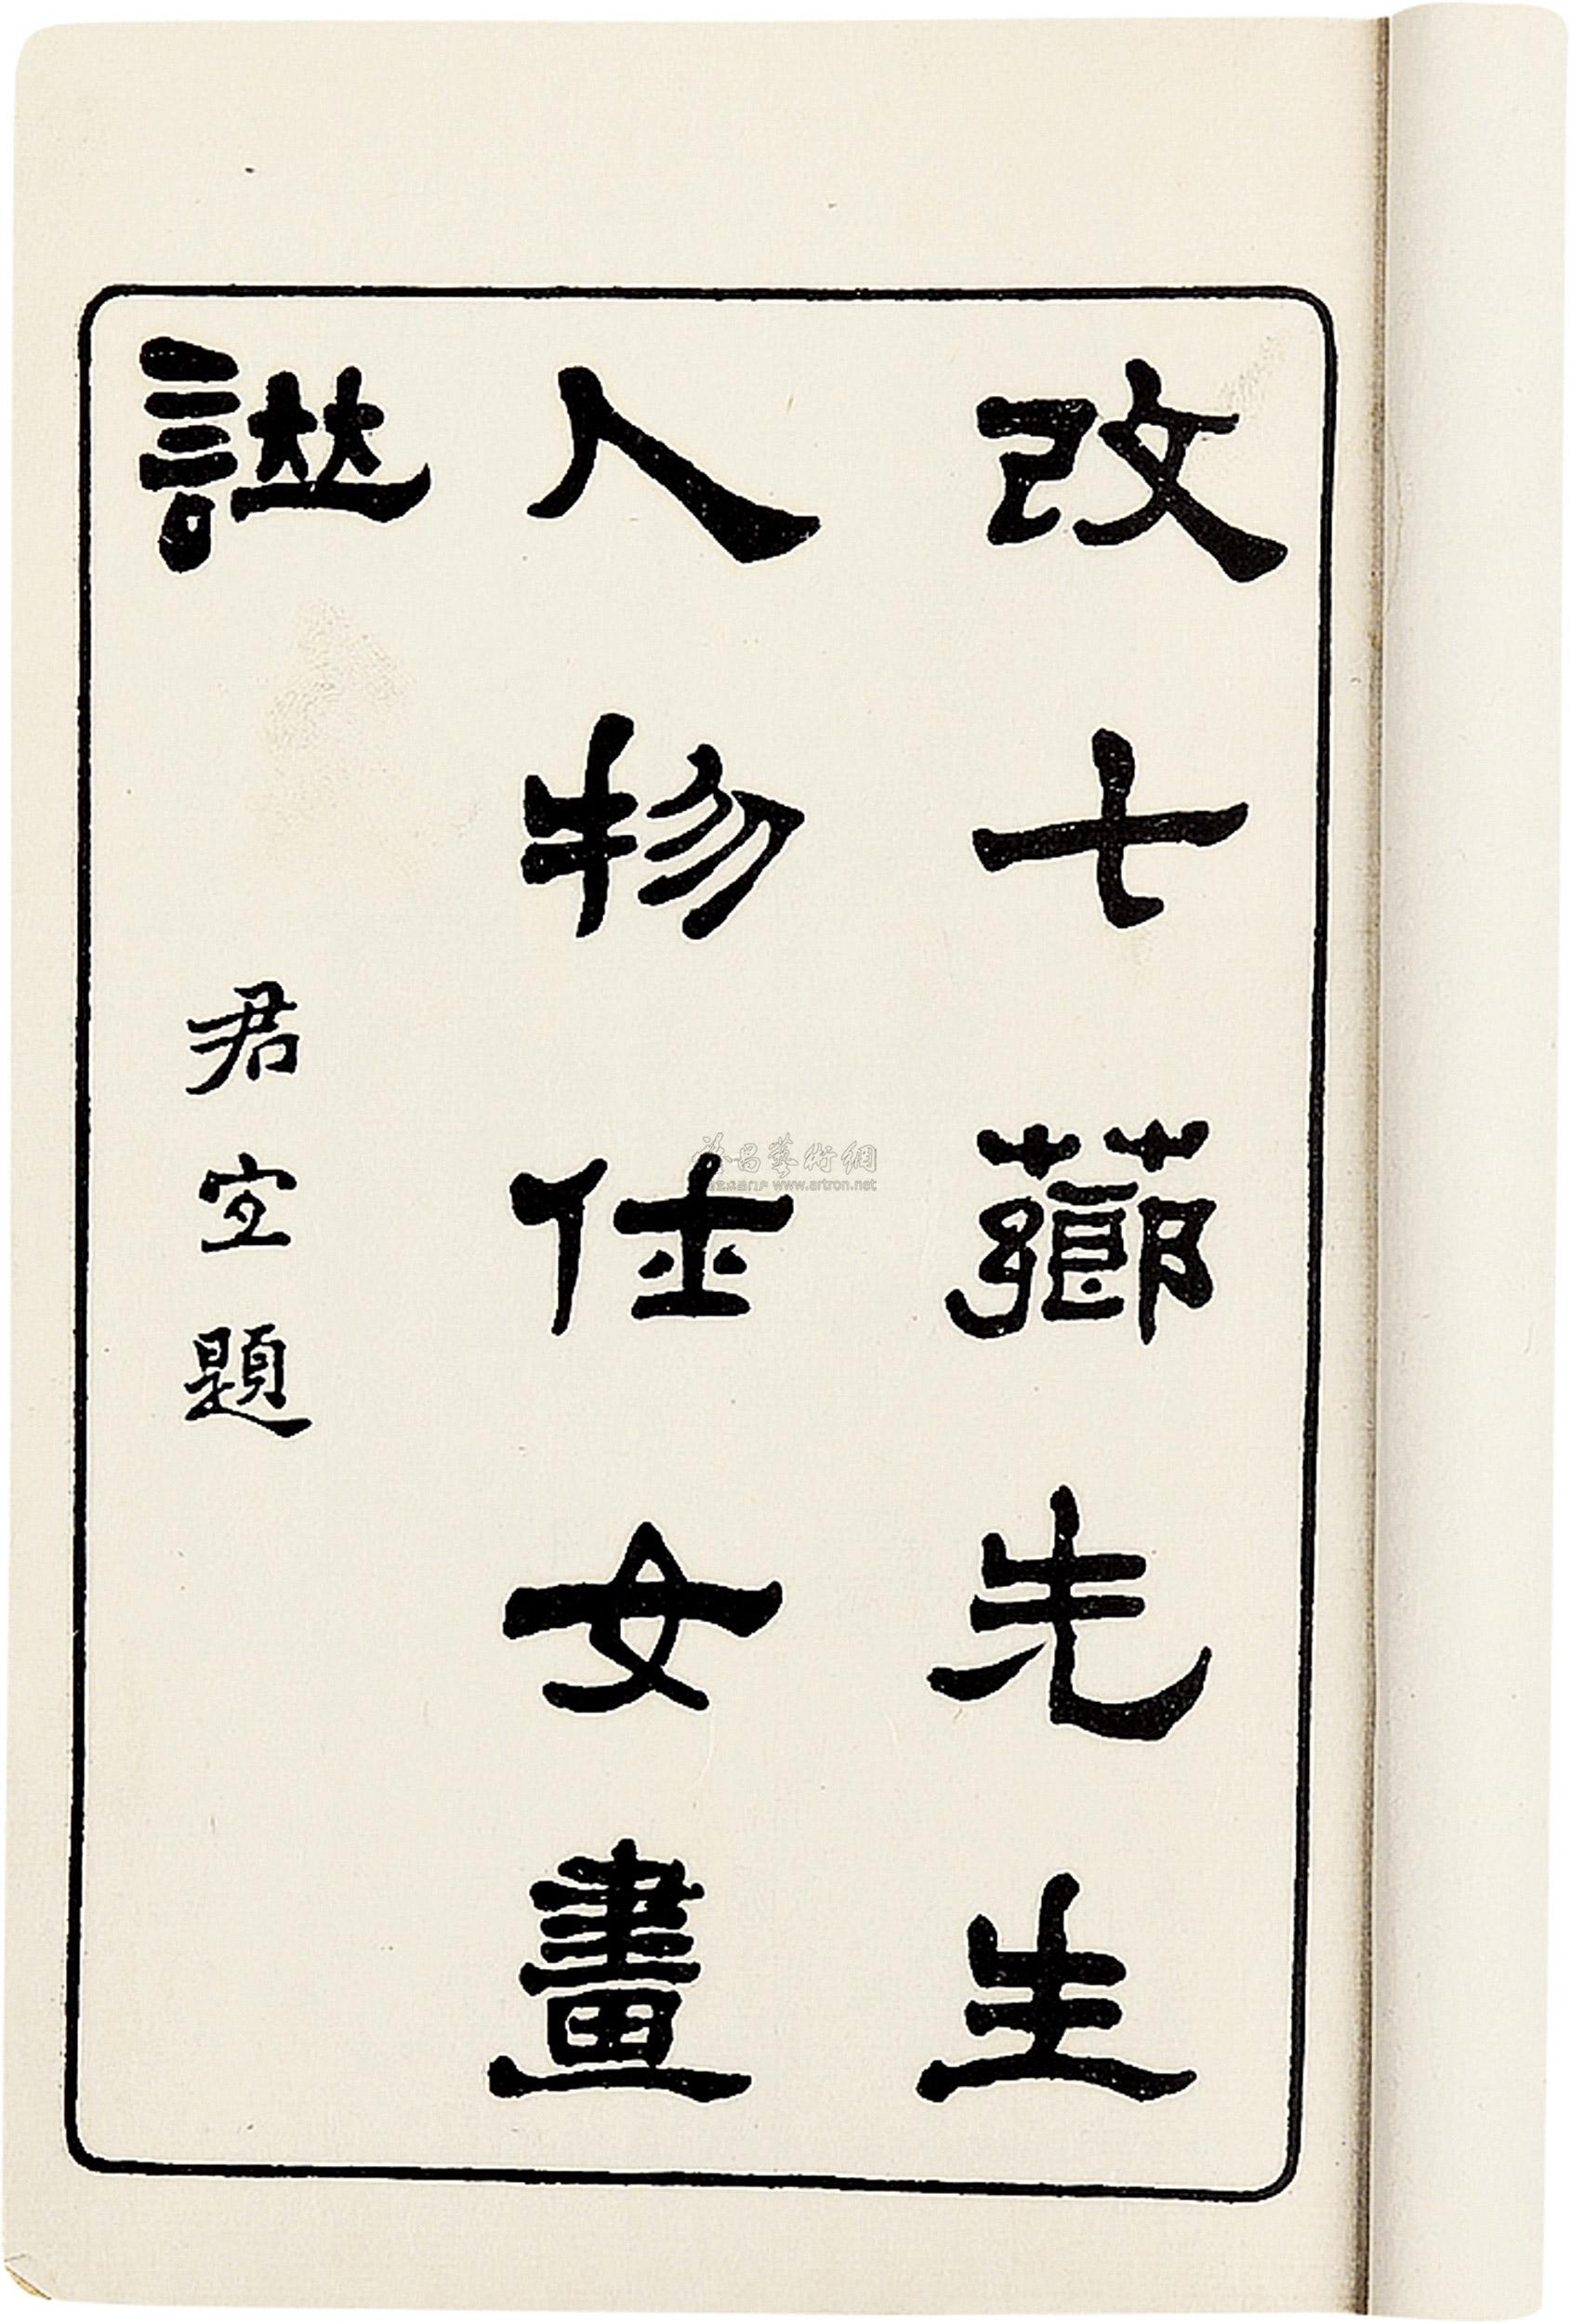 改七薌先生
人物仕女畫
譜
君宜題
雅昌藝術網
www.artron.net